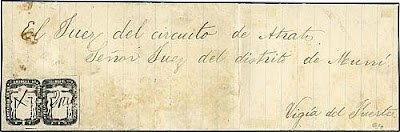 El Juez del circuito de Atrato
Señor Juez del distrito de Murrí.
Vigía del Fuerte